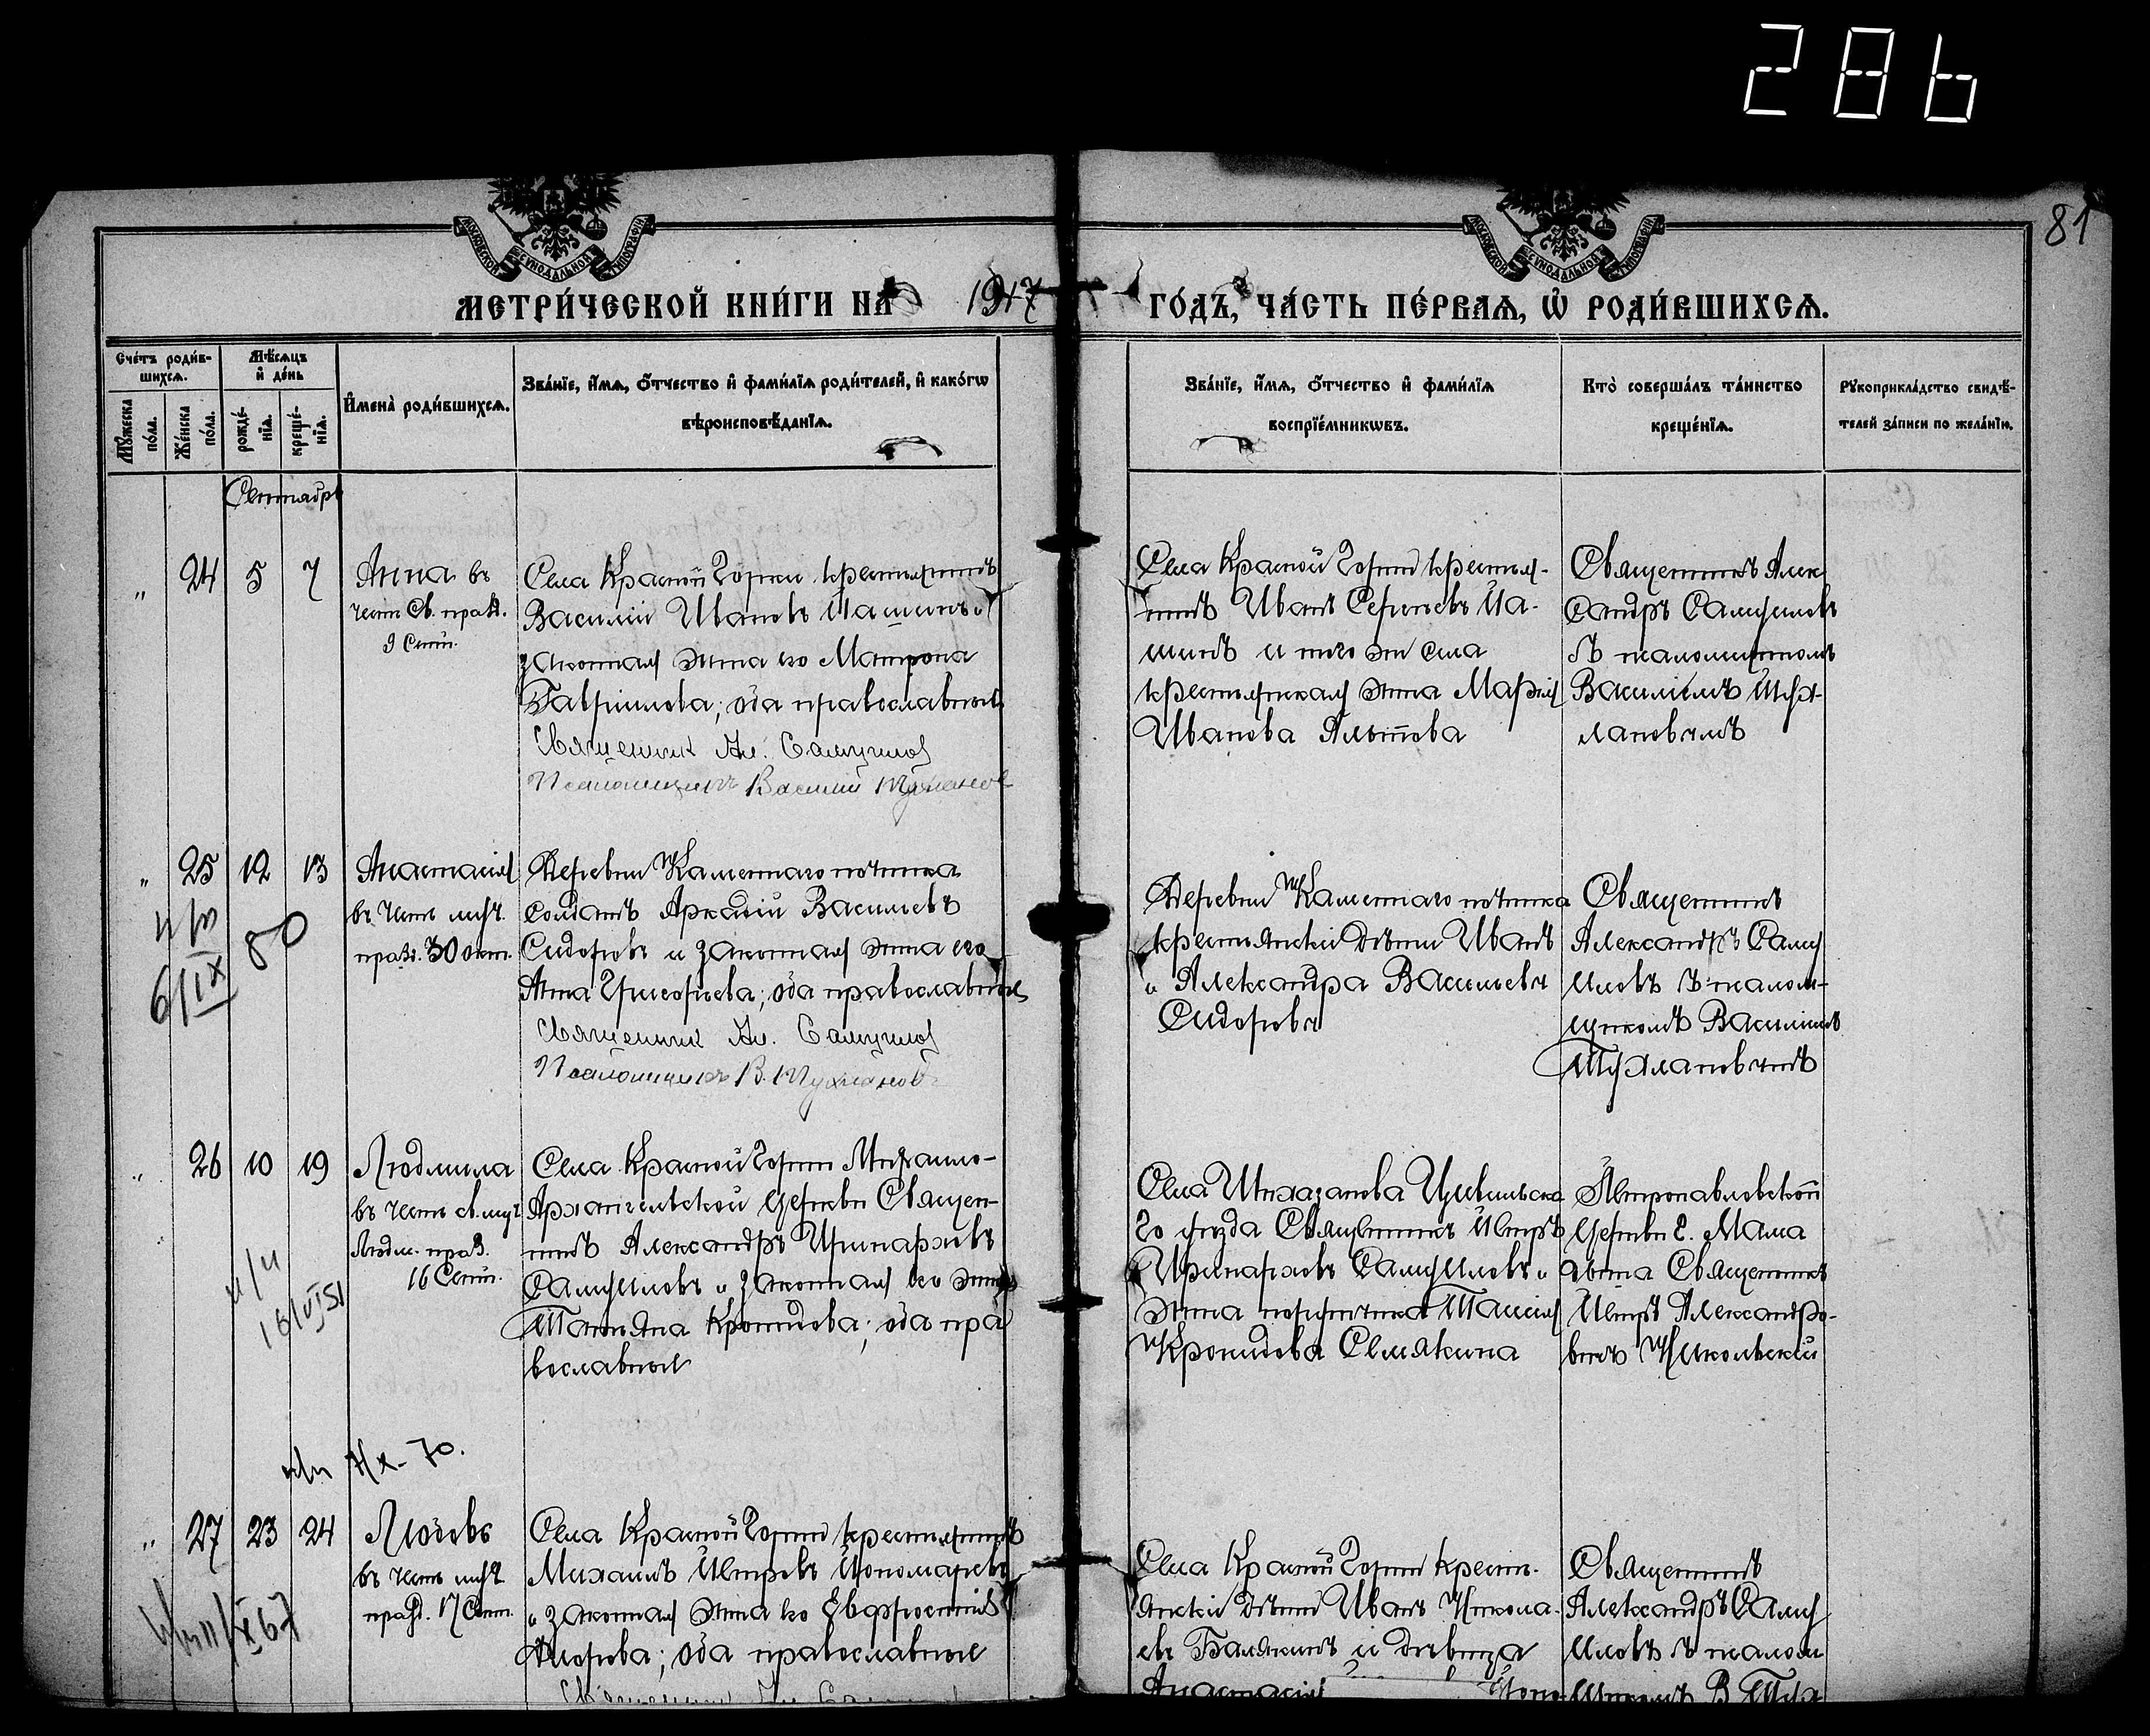 286
81
МОСКОВСКОЙ СѴНОДАЛЬНОЙ ТИПОГРАФІИ
МОСКОВСКОЙ СѴНОДАЛЬНОЙ ТИПОГРАФІИ
МЕТРИ́ЧЕСКОЙ КНИ́ГИ НА 1917 ГО́ДЪ, ЧА́СТЬ ПЕ́РВАѦ, Ѡ РОДИ́ВШИХСѦ.
Сче́тъ роди́в-
шихсѧ.
Мѣ́сѧцъ
и҆ де́нь
Мꙋ́жеска по́ла.
Же́нска по́ла.
рожде́-
нїѧ.
креще́-
нїѧ.
И҆мена̀ роди́вшихсѧ.
Зва́нїе, и҆́мѧ, ѻ҆́тчество и҆ фами́лїѧ роди́телей, и҆ како́гѡ
вѣроисповѣ́данїѧ.
Зва́нїе, и҆́мѧ, ѻ҆́тчество и҆ фами́лїѧ
воспрїе́мникѡвъ.
Кто̀ соверша́лъ та́инство
креще́нїѧ.
Рꙋкоприкла́дство свидѣ́-
телей за́писи по жела́нїю.
Сентябрь
" 24 5 7
Анна въ
честь Св. празд.
9 Сент.
Села Красной Горки крестьянинъ
Василій Ивановъ Пашинъ и
законная жена его Матрона
Гаврiилова; оба православные
Священник Ал. Самуилов
Псаломщикъ Василій Тухланов
Села Красной Горки крестья-
нинъ Иванъ Сергѣевъ Па-
шинъ и того же села
крестьянская жена Марія
Иванова
Священникъ Алек
сандръ Самуиловъ
съ псаломщикомъ
Василіемъ Тух-
лановымъ
" 25 12 13
Анастасія
въ честь муч.
празд. 30 окт.
и/ю
6/IX 80
Деревни Каменнаго починка
солдатъ Аркадій Васильевъ
Сидоровъ и законная жена его
Анна Григорьева; оба православные
Священник Ал. Самуилов
Псаломщикъ В. Тухланов
Деревни Каменнаго починка
крестьянскіе дѣти Иванъ
и Александра Васильевы
Сидоровы
Священникъ
Александръ Саму
иловъ съ псалом-
щикомъ Василіемъ
Тухлановымъ
" 26 10 19
Людмила
въ честь св. муч.
Людм. празд.
16 Сент.
16/VI 51
Села Красной Горки Михаило-
Архангельской церкви Священ-
никъ Александръ Иринарховъ
Самуиловъ и законная его жена
Татьяна Кронидова; оба пра
вославные
Села Шихазанова Цивильска
го уѣзда Священникъ Петръ
Иринарховъ Самуиловъ и
жена поручика Таисія
Кронидова Семякина
Петропавловской
церкви г. Мама
дыша Священникъ
Петръ Александро-
вичъ Никольскій
7/X-70.
" 27 23 24
Любовь
въ честь муч.
празд. 17 Сент.
11/X 67
Села Красной Горки крестьянинъ
Михаилъ Петровъ Пономаревъ
и законная жена его Евфросинія
оба православные
Села Красной Горки крест-
янскіе дѣти Иванъ Никола-
евъ Балякинъ и дѣвица
Анастасія
Священникъ
Александръ Саму
иловъ съ псалом
щикомъ В. Тух-